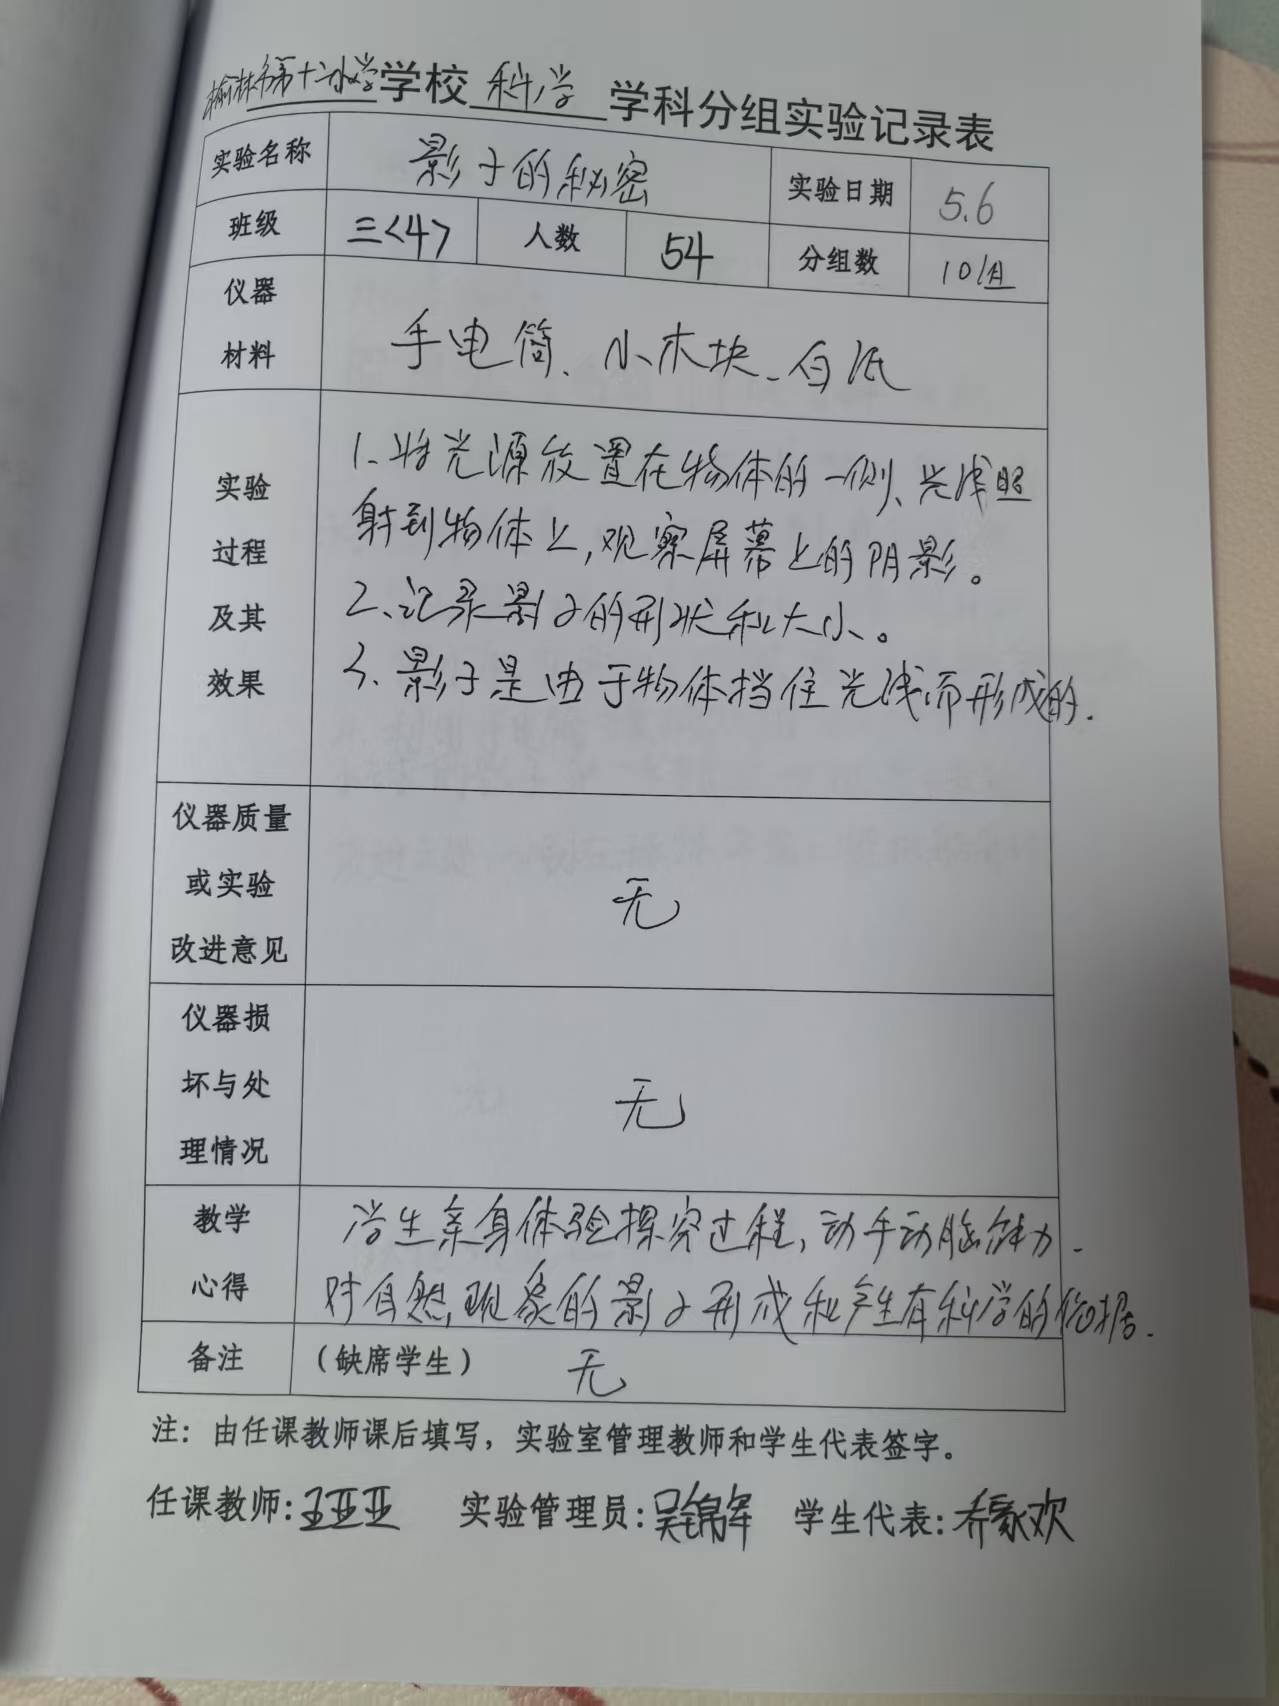 榆林市第十二小学学校 科学 学科分组实验记录表
实验名称 影子的秘密 实验日期 5.6
班级 三<4> 人数 54 分组数 10组
仪器
材料
手电筒、小木块、白纸
实验
过程
及其
效果
1.将光源放置在物体的一侧、光线照
射到物体上,观察屏幕上的阴影。
2.记录影子的形状和大小。
3.影子是由于物体挡住光线而形成的.
仪器质量
或实验
改进意见
无
仪器损
坏与处
理情况
无
教学
心得
学生亲身体验探究过程,动手动脑能力.
对自然现象的影子形成和产生有科学的依据.
备注 (缺席学生) 无
注:由任课教师课后填写,实验室管理教师和学生代表签字。
任课教师:王亚亚 实验管理员:吴锦军 学生代表:乔豪欢